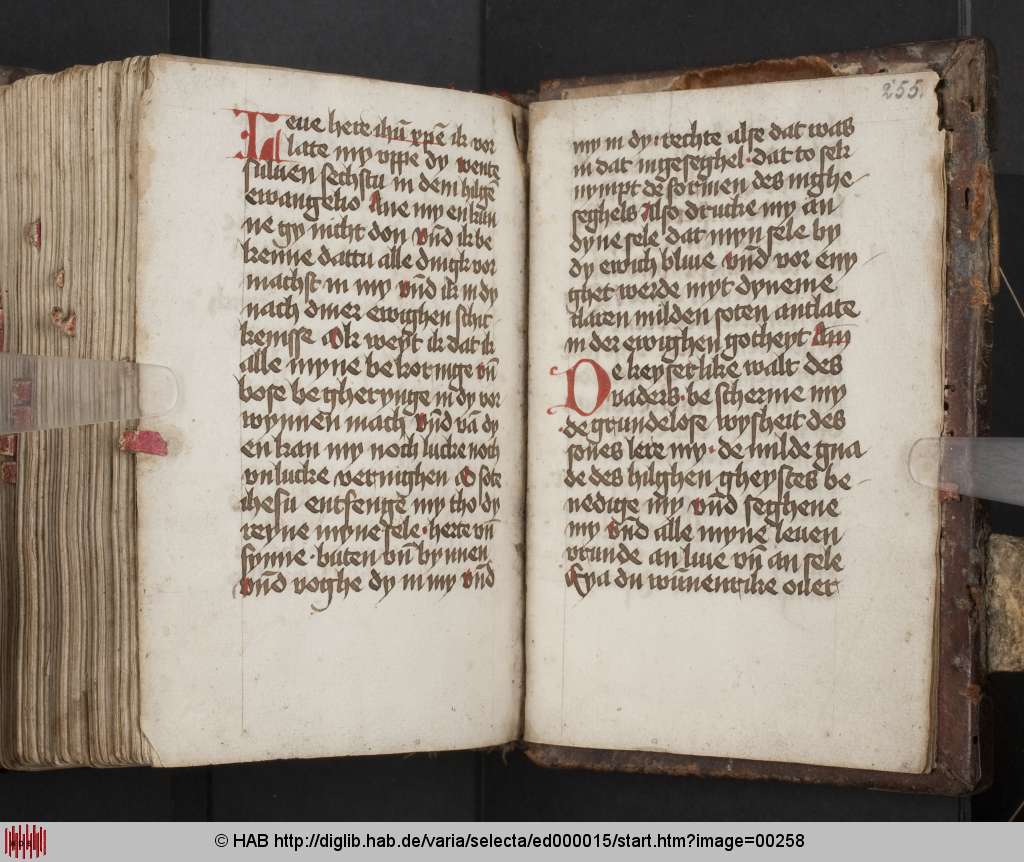 Leue here ihū xpē ik vor
late my vppe dy wente
suluen sechstu in dem hilgē
ewangelio Ane my en kun
ne gy nicht don vnd ik be
kenne dattu alle dingk vor
machst in my vnd ik in dy
nach diner ewighen schic
kenisse Ok weyt ik dat ik
alle myne bekoringe vn̄
bose begherynge in dy vor
wynnen mach vnd vā dy
en kan my noch lucke noch
vnlucke vernighen O sote
ihesu entfengē my tho dy
reyne myne sele · herte vn̄
synne · buten vn̄ bynnen
vnd voghe dy in my vnd
255.
my in dy · rechte alse dat was
in dat ingeseghel · dat to sek
nympt de formen des inghe
seghels Also drucke my an
dyne sele dat myn sele by
dy ewich bliue vnd vor eny
ghet werde myt dyneme
claren milden soten antlate
in der ewighen gotheyt Am̄
De keyserlike walt des
vaders · bescherme my
· de grundelose wysheit des
sones lere my · de milde gna
de des hilghen gheystes be
nedige my vnd seghene
my vnd alle myne leuen
vrunde an liue vn̄ an sele
Eya du wūnentrike ouer
© HAB http://diglib.hab.de/varia/selecta/ed000015/start.htm?image=00258